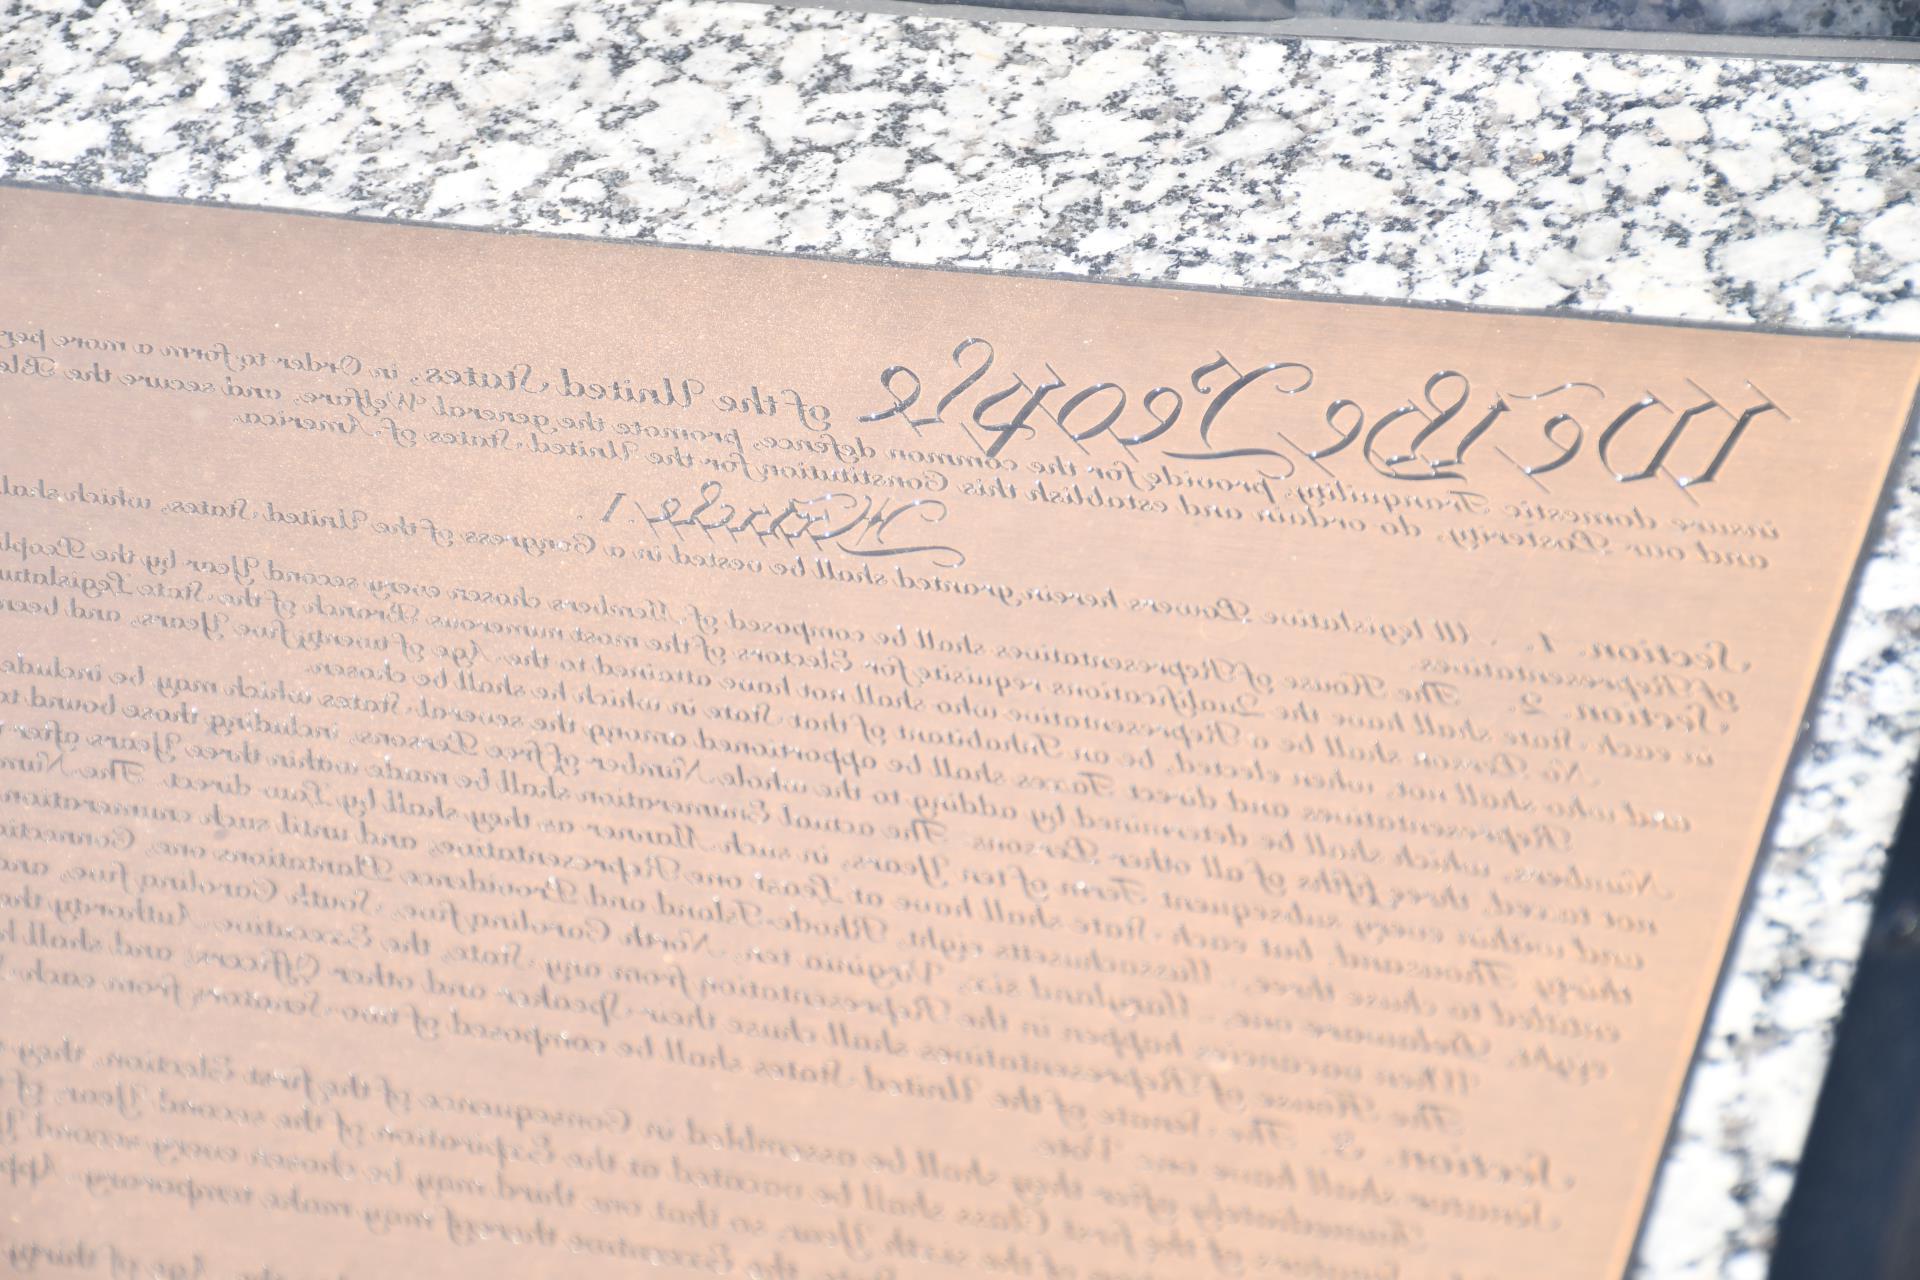 We the People of the United States, in Order to form a more per
insure domestic Tranquility, provide for the common defence, promote the general Welfare, and secure the Ble
and our Posterity, do ordain and establish this Constitution for the United States of America.
Article. I.
Section. 1. All legislative Powers herein granted shall be vested in a Congress of the United States, which shall
of Representatives.
Section. 2. The House of Representatives shall be composed of Members chosen every second Year by the People
in each State shall have the Qualifications requisite for Electors of the most numerous Branch of the State Legislatu
No Person shall be a Representative who shall not have attained to the Age of twenty five Years, and been
and who shall not, when elected, be an Inhabitant of that State in which he shall be chosen.
Representatives and direct Taxes shall be apportioned among the several States which may be include
Numbers, which shall be determined by adding to the whole Number of free Persons, including those bound to
not taxed, three fifths of all other Persons. The actual Enumeration shall be made within three Years after
and within every subsequent Term of ten Years, in such Manner as they shall by Law direct. The Num
thirty Thousand, but each State shall have at Least one Representative; and until such enumeration
entitled to chuse three, Massachusetts eight, Rhode-Island and Providence Plantations one, Connectic
eight, Delaware one, Maryland six, Virginia ten, North Carolina five, South Carolina five, and
When vacancies happen in the Representation from any State, the Executive Authority the
The House of Representatives shall chuse their Speaker and other Officers; and shall h
Section. 3. The Senate of the United States shall be composed of two Senators from each
Senator shall have one Vote.
Immediately after they shall be assembled in Consequence of the first Election, they
Senators of the first Class shall be vacated at the Expiration of the second Year, of
of the sixth Year, so that one third may be chosen every second Y
State, the Executive thereof may make temporary App
the Age of thirty